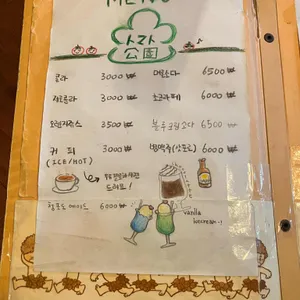 MENU
사라
公園
콜라 3000₩
제로콜라 3000₩
오렌지쥬스 3500₩
커 피 3000₩
(ICE/HOT)
메론소다 6500₩
초코라떼 6000₩
블루크림소다 6500₩
병맥주(삿포로) 6000₩
드려요!
청포도에이드 6000₩
vanilla
icecream..!